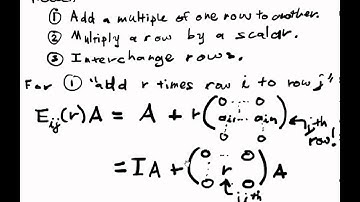 ① Add a multiple of one row to another.
② Multiply a row by a scalar.
③ Interchange rows.
For ① "add r times row i to row j"
E_ij(r)A = A + r(0 ... 0 a_i1 ... a_in 0 ... 0) ← jth row!
= IA + (0 ... 0 r 0 ... 0)A
ijth